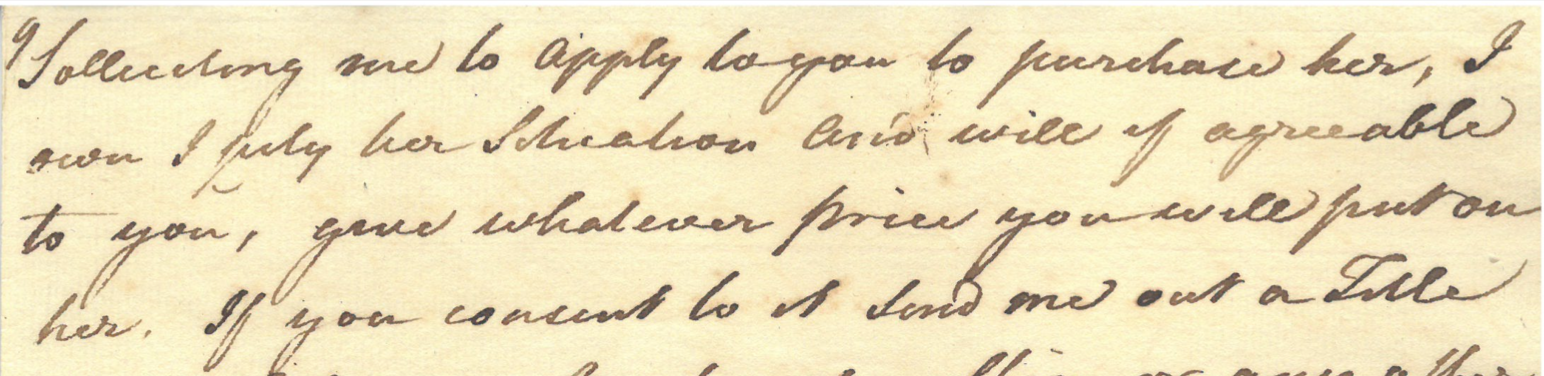 Solliciting me to apply to you to purchase her, I
own I pity her Situation and will if agreeable
to you, give whatever price you will put on
her. If you consent to it send me out a Title
or any other